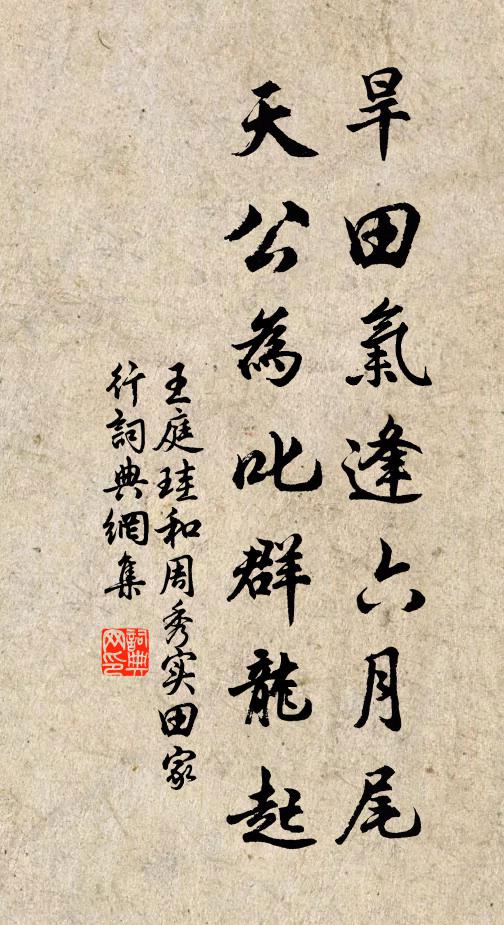 旱田氣逢六月尾
天公為叱群龍起
王庭珪和周秀实田家
行詞典網集
詞典网印